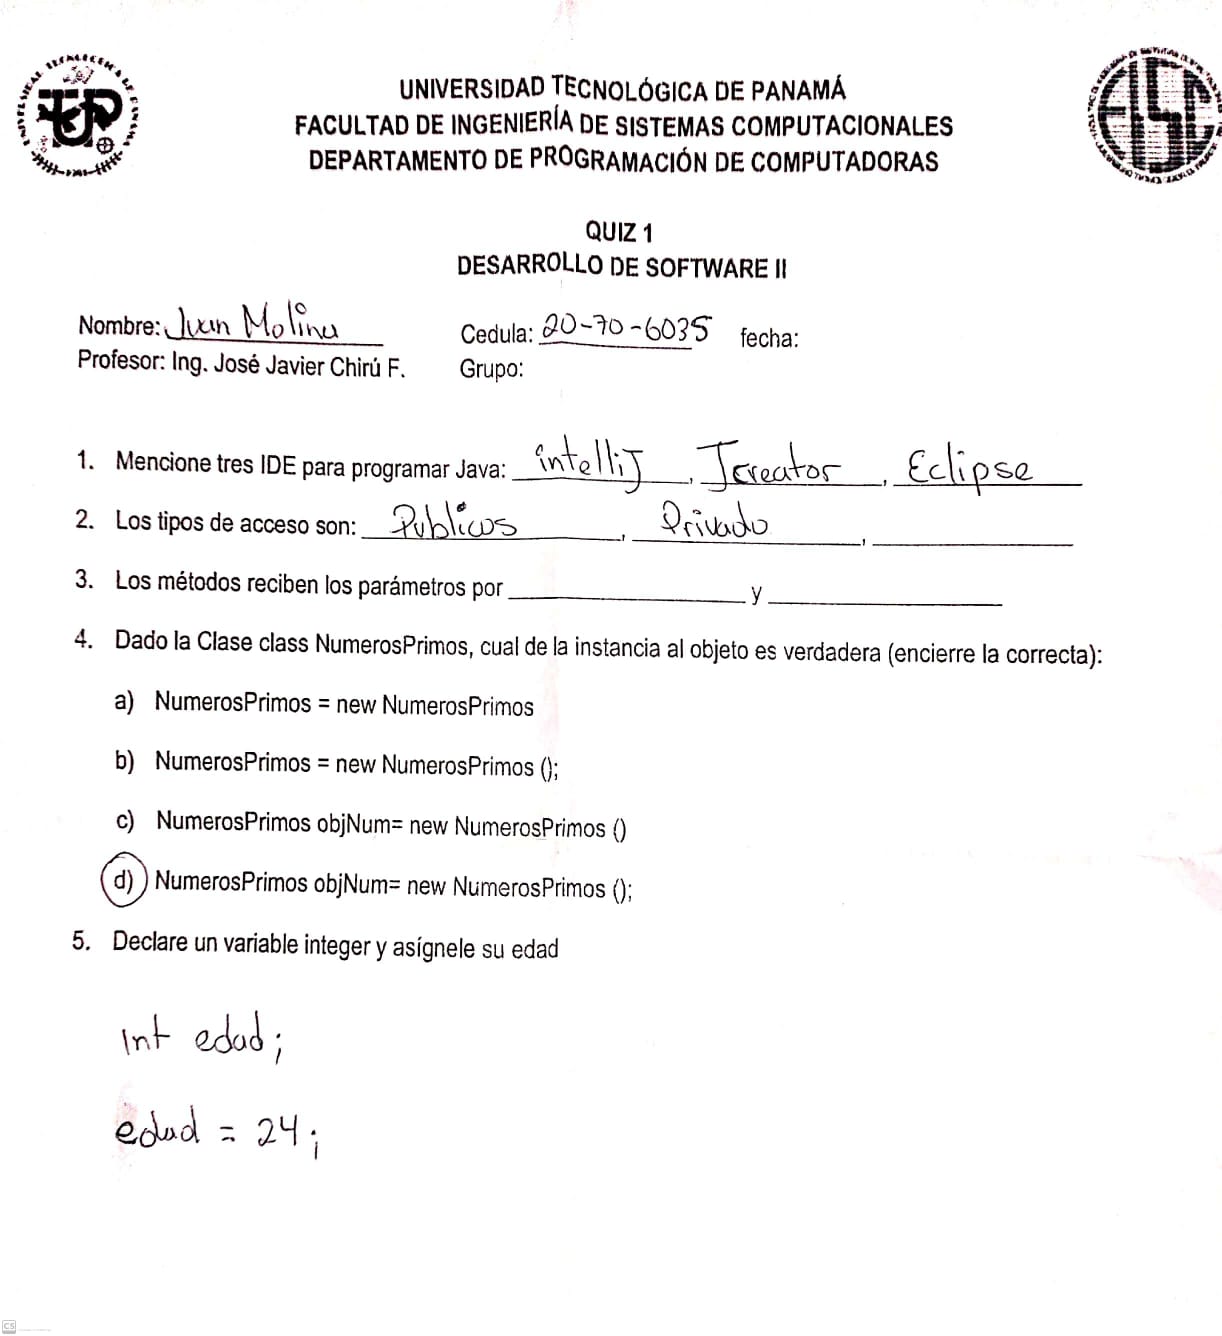 UNIVERSIDAD TECNOLÓGICA DE PANAMÁ
FACULTAD DE INGENIERÍA DE SISTEMAS COMPUTACIONALES
DEPARTAMENTO DE PROGRAMACIÓN DE COMPUTADORAS
QUIZ 1
DESARROLLO DE SOFTWARE II
Nombre: Juan Molina Cedula: 20-70-6035 fecha:
Profesor: Ing. José Javier Chirú F. Grupo:
1. Mencione tres IDE para programar Java: intelliJ, Jcreator, Eclipse
2. Los tipos de acceso son: Publicos, Privado,
3. Los métodos reciben los parámetros por y
4. Dado la Clase class NumerosPrimos, cual de la instancia al objeto es verdadera (encierre la correcta):
a) NumerosPrimos = new NumerosPrimos
b) NumerosPrimos = new NumerosPrimos ();
c) NumerosPrimos objNum= new NumerosPrimos ()
d) NumerosPrimos objNum= new NumerosPrimos ();
5. Declare un variable integer y asígnele su edad
Int edad;
edad = 24;
CS